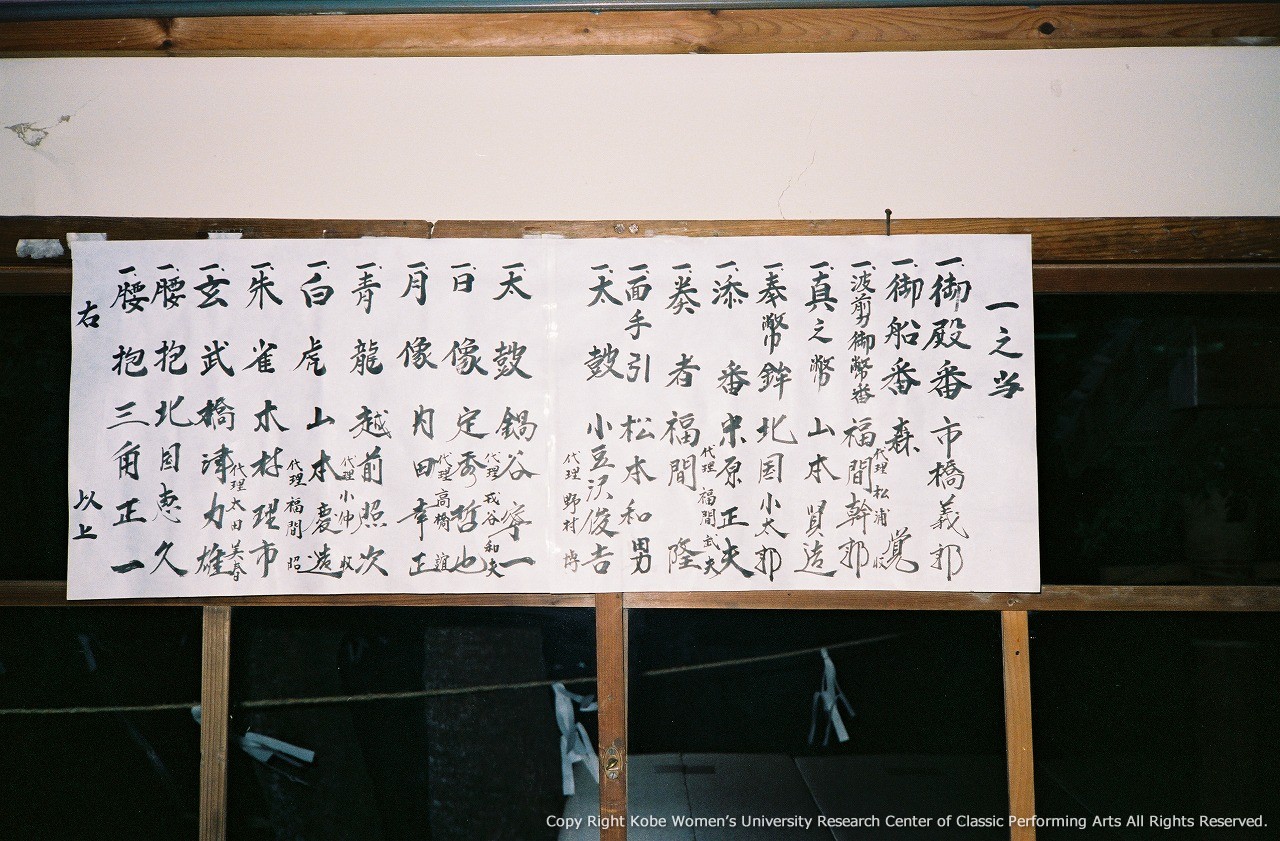 一之当
一、御殿番 市橋義郎
一、御船番 森 覚
代理 松浦
一、波剪御幣番 福間幹郎
一、真之幣 山本賢造
一、奉幣鉾 北国小太郎
一、添番 中原正夫
代理 福間武夫
一、奏者 福間 隆
一、面手引 松本和男
一、太鼓 小豆沢俊吉
代理 野村 博
一、太鼓 鍋谷 一
代理 和夫
一、日像 定秀哲也
代理 高橋 誼
一、月像 内田幸正
一、青龍 越前照次
代理 小仲
一、白虎 山本慶造
代理 福間 昭
一、朱雀 木村理市
代理 太田 美春
一、玄武 橋津力雄
一、腰抱 北国恵久
一、腰抱 三角正一
右 以上
Copy Right Kobe Women's University Research Center of Classic Performing Arts All Rights Reserved.